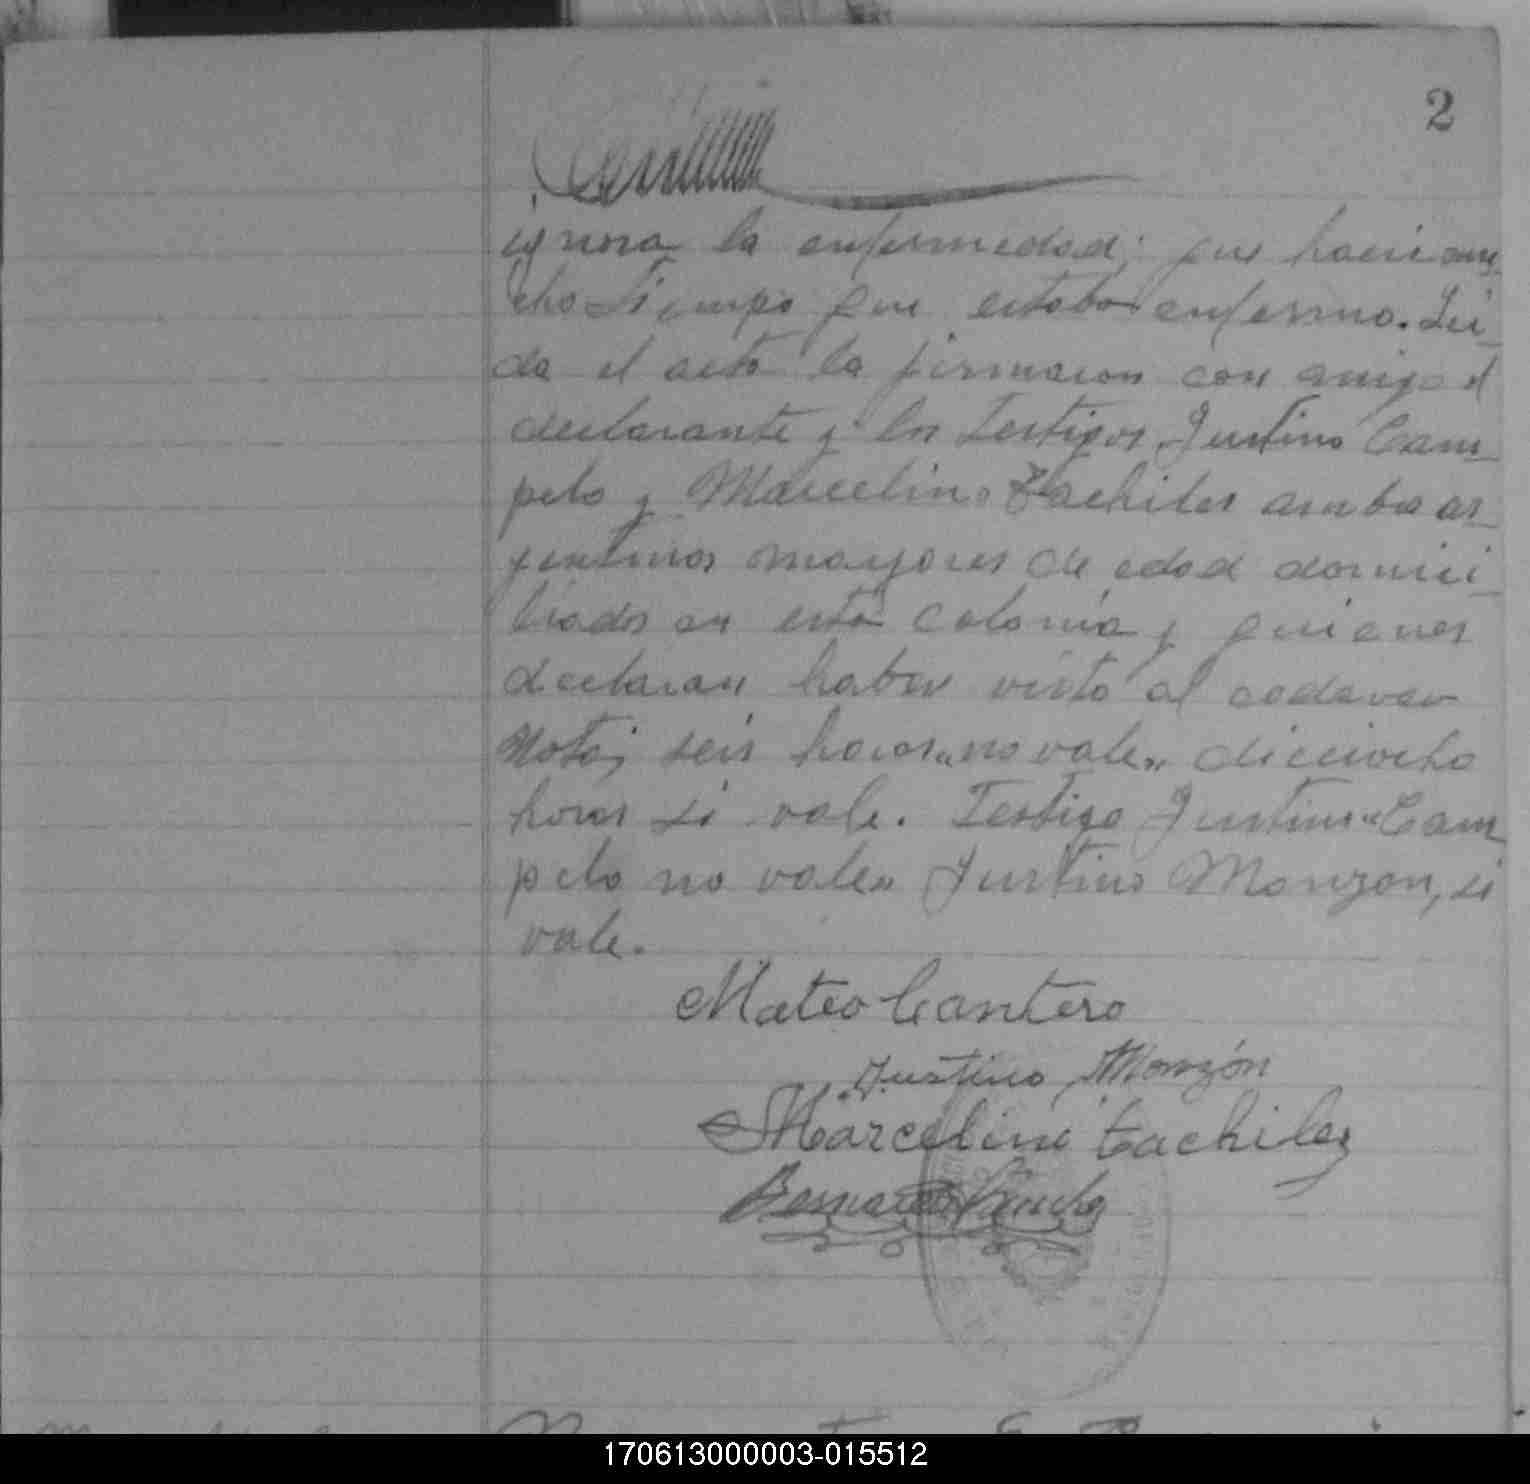 2
ignora la enfermedad; que hacia mu
cho tiempo que estaba enfermo. Lei
da el acta la firmaron con migo el
declarante y los testigos Justino Cam
pelo y Marcelino Tachiles ambos ar
gentinos mayores de edad domici
liados en esta colonia y quienes
declaran haber visto al cadaver
Nota; seis horas "no vale" dieciocho
horas si vale. Testigo Justino "Cam
pelo no vale" Justino Monzon, si
vale.
Mateo Cantero
Justino Monzón
Marcelino Tachiles
Bernardo
170613000003-015512